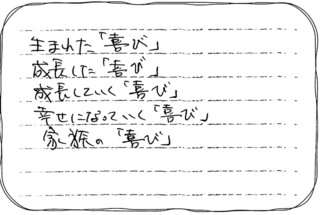 生まれた「喜び」
成長した「喜び」
成長していく「喜び」
幸せになっていく「喜び」
家族の「喜び」